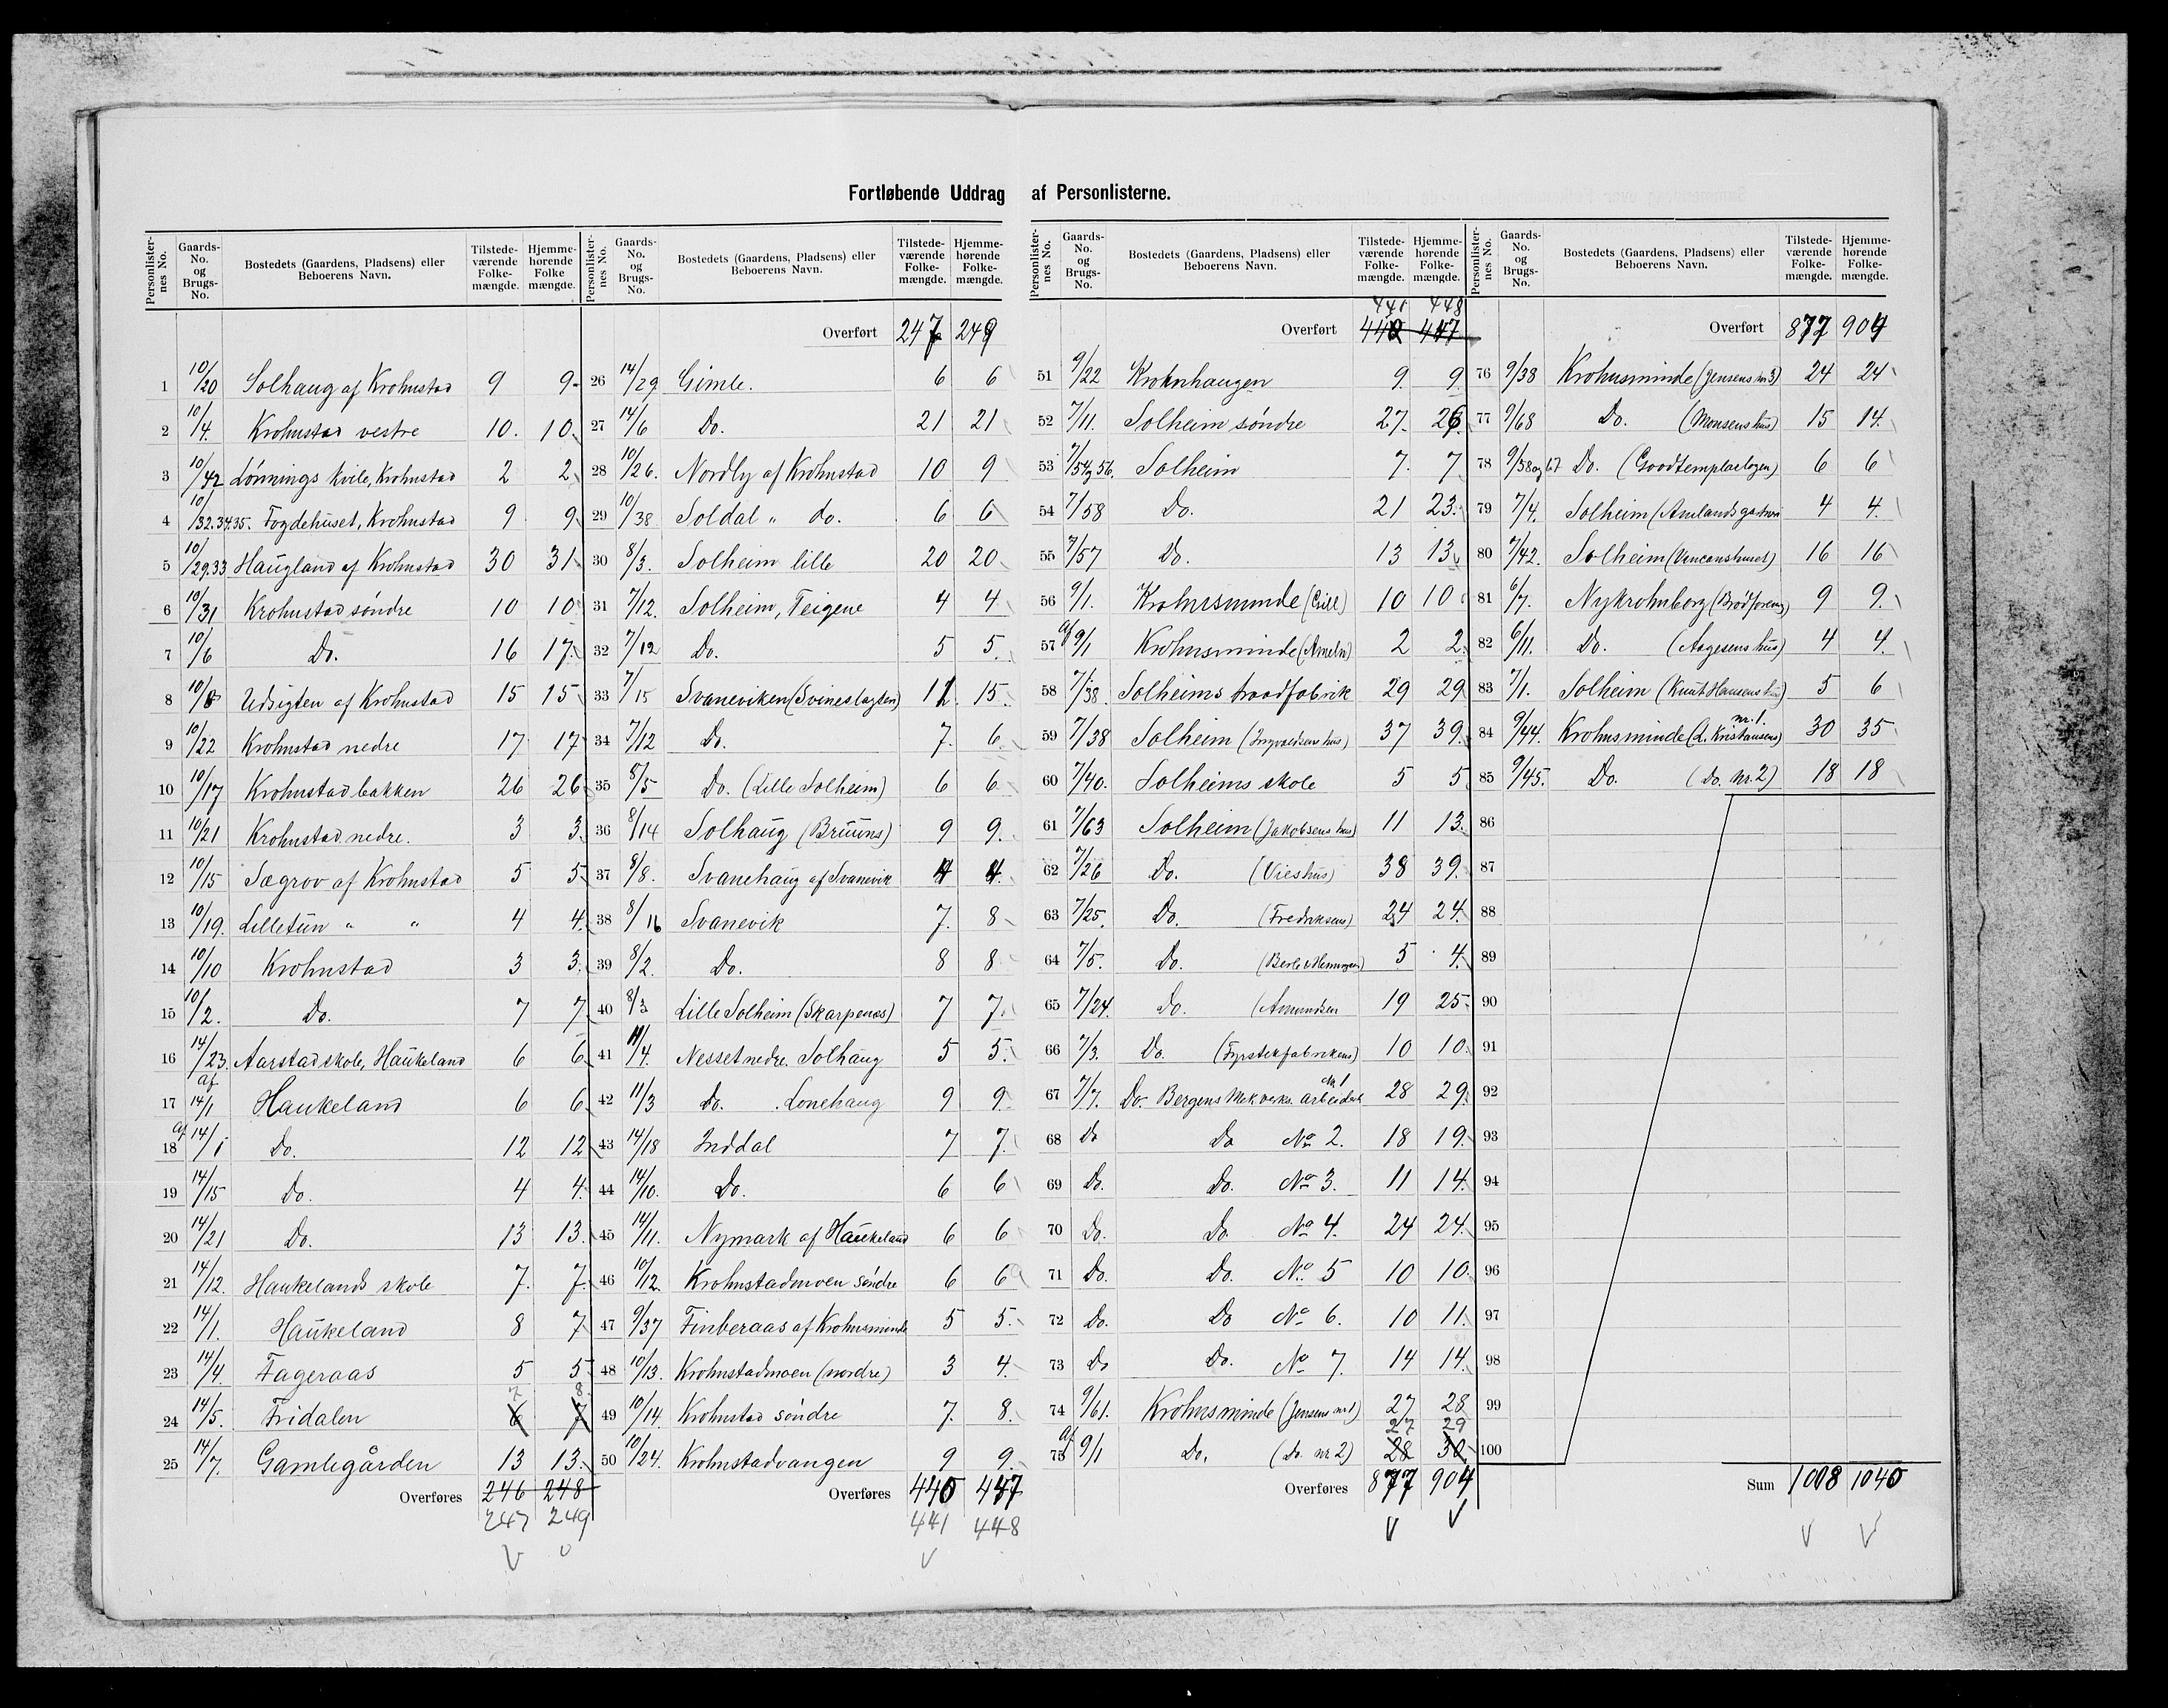 Fortløbende Uddrag af Personlisterne.
Personlister-nes No. Gaards-No. og Brugs-No. Bostedets (Gaardens, Pladsens) eller Beboerens Navn. Tilstede-værende Folke-mængde. Hjemme-hørende Folke mængde.
1 10/20 Solhaug af Krohnstad 9 9
2 10/4. Krohnstad vestre 10. 10.
3 10/42 Lønnings Kvile, Krohnstad 2 2
4 10/32.34.35. Fogdehuset, Krohnstad 9 9
5 10/29.33 Haugland af Krohnstad 30 31
6 10/31 Krohnstad søndre 10 10
7 10/6 Do. 16 17.
8 10/8 Udsigten af Krohnstad 15 15
9 10/22 Krohnstad nedre 17 17
10 10/17 Krohnstadbakken 26 26
11 10/21 Krohnstad nedre. 3 3.
12 10/15 Sægrov af Krohnstad 5 5
13 10/19. Lilletun " " 4 4.
14 10/10 Krohnstad 3 3.
15 10/2. Do. 7 7
16 14/23. Aarstad skole, Haukeland 6 6
17 af 14/1 Haukeland 6 6
18 af 14/1 Do. 12 12
19 14/15 Do. 4 4.
20 14/21 Do. 13 13.
21 14/12. Haukelands skole 7. 7.
22 14/1. Haukeland 8 7
23 14/4. Fageraas 5 5
7 8
24 14/5. Fridalen 6 7
25 14/7. Gamlegården 13 13.
Overføres 246 248
247 249
Personlister-nes No. Gaards-No. og Brugs-No. Bostedets (Gaardens, Pladsens) eller Beboerens Navn. Tilstede-værende Folke-mængde. Hjemme-hørende Folke-mængde.
Overført 247 249
26 14/29 Gimle. 6 6
27 14/6 Do. 21 21
28 10/26. Nordly af Krohnstad 10 9
29 10/38 Soldal " do. 6 6
30 8/3. Solheim lille 20 20
31 7/12. Solheim, Teigene 4 4
32 7/12 Do. 5 5.
33 7/15 Svaneviken (Svineslagteri) 12. 15.
34 7/12 Do. 7. 6.
35 8/5 Do. (Lille Solheim) 6 6
36 8/14 Solhaug (Bruuns) 9 9.
37 8/8. Svanehaug af Svanevik 4 4.
38 8/16 Svanevik 7. 8
39 8/2. Do. 8 8
40 8/3 Lille Solheim (Skarpenæs) 7 7.
41 11/4. Nesset nedre. Solhaug 5 5.
42 11/3 Do. Lonehaug 9 9.
43 14/18 Inddal 7 7.
44 14/10. Do. 6 6
45 14/11. Nymark af Haukeland 6 6
46 10/12. Krohnstadmoen søndre 6 6
47 9/37 Finberaas af Krohnsminde 5 5.
48 10/13. Krohnstadmoen (nordre) 3 4.
49 10/14. Krohnstad søndre 7. 8.
50 10/24. Krohnstadvangen 9 9.
Overføres 440 447
441 448
Personlister-nes No. Gaards-No. og Brugs-No. Bostedets (Gaardens, Pladsens) eller Beboerens Navn. Tilstede-værende Folke-mængde. Hjemme-hørende Folke-mængde.
441 448
Overført 440 447
51 9/22 Krohnhaugen 9. 9
52 7/11. Solheim søndre 27. 26.
53 7/54og56. Solheim 7. 7
54 7/58 Do. 21 23.
55 7/57 Do. 13 13
56 9/1. Krohnsminde 10 10
57 af 9/1 Krohnsminde (Ameln) 2 2
58 7/38. Solheims traadfabrik 29 29
59 7/38 Solheim (Ingvaldsens hus) 37 39.
60 7/40. Solheims skole 5 5
61 7/63 Solheim (Jakobsens hus) 11 13.
62 7/26 Do. (Vies hus) 38 39.
63 7/25. Do. (Fredriksens) 24 24.
64 7/5. Do. 5 4.
65 7/24. Do. (Amundsen 19 25
66 7/3. Do. (Fyrstikfabrikens) 10 10
67 7/7. Do. Bergens Mek. verks. Arbeiderb. No 1 28 29.
68 Do Do No 2. 18 19.
69 Do. Do. No 3. 11 14.
70 Do. Do. No 4. 24 24.
71 Do. Do. No 5 10 10.
72 Do. Do No 6. 10 11.
73 Do Do. No 7. 14 14.
74 9/61. Krohnsminde (Jensens nr 1) 27 28
27 29
75 af 9/1 Do. (Do. nr 2) 28 30
Overføres 877 904
Personlister-nes No. Gaards-No. og Brugs-No. Bostedets (Gaardens, Pladsens) eller Beboerens Navn. Tilstede-værende Folke-mængde. Hjemme-hørende Folke-mængde.
Overført 877 904
76 9/38 Krohnsminde (Jensens nr 3) 24 24
77 9/68 Do. (Monsens hus) 15 14.
78 9/38og67 Do. (Goodtemplarlogen) 6 6
79 7/4. Solheim 4 4.
80 7/42. Solheim 16 16
81 6/7. Nykrohnborg (Brødforening) 9 9.
82 6/11. Do. (Aagesens hus) 4 4.
83 7/1. Solheim (Knut Hansens hus) 5 6
84 9/44. Krohnsminde (L. Kristiansens) nr. 1. 30 35
85 9/45. Do. (Do. nr. 2) 18 18
86
87
88
89
90
91
92
93
94
95
96
97
98
99
100
Sum 1008 1040